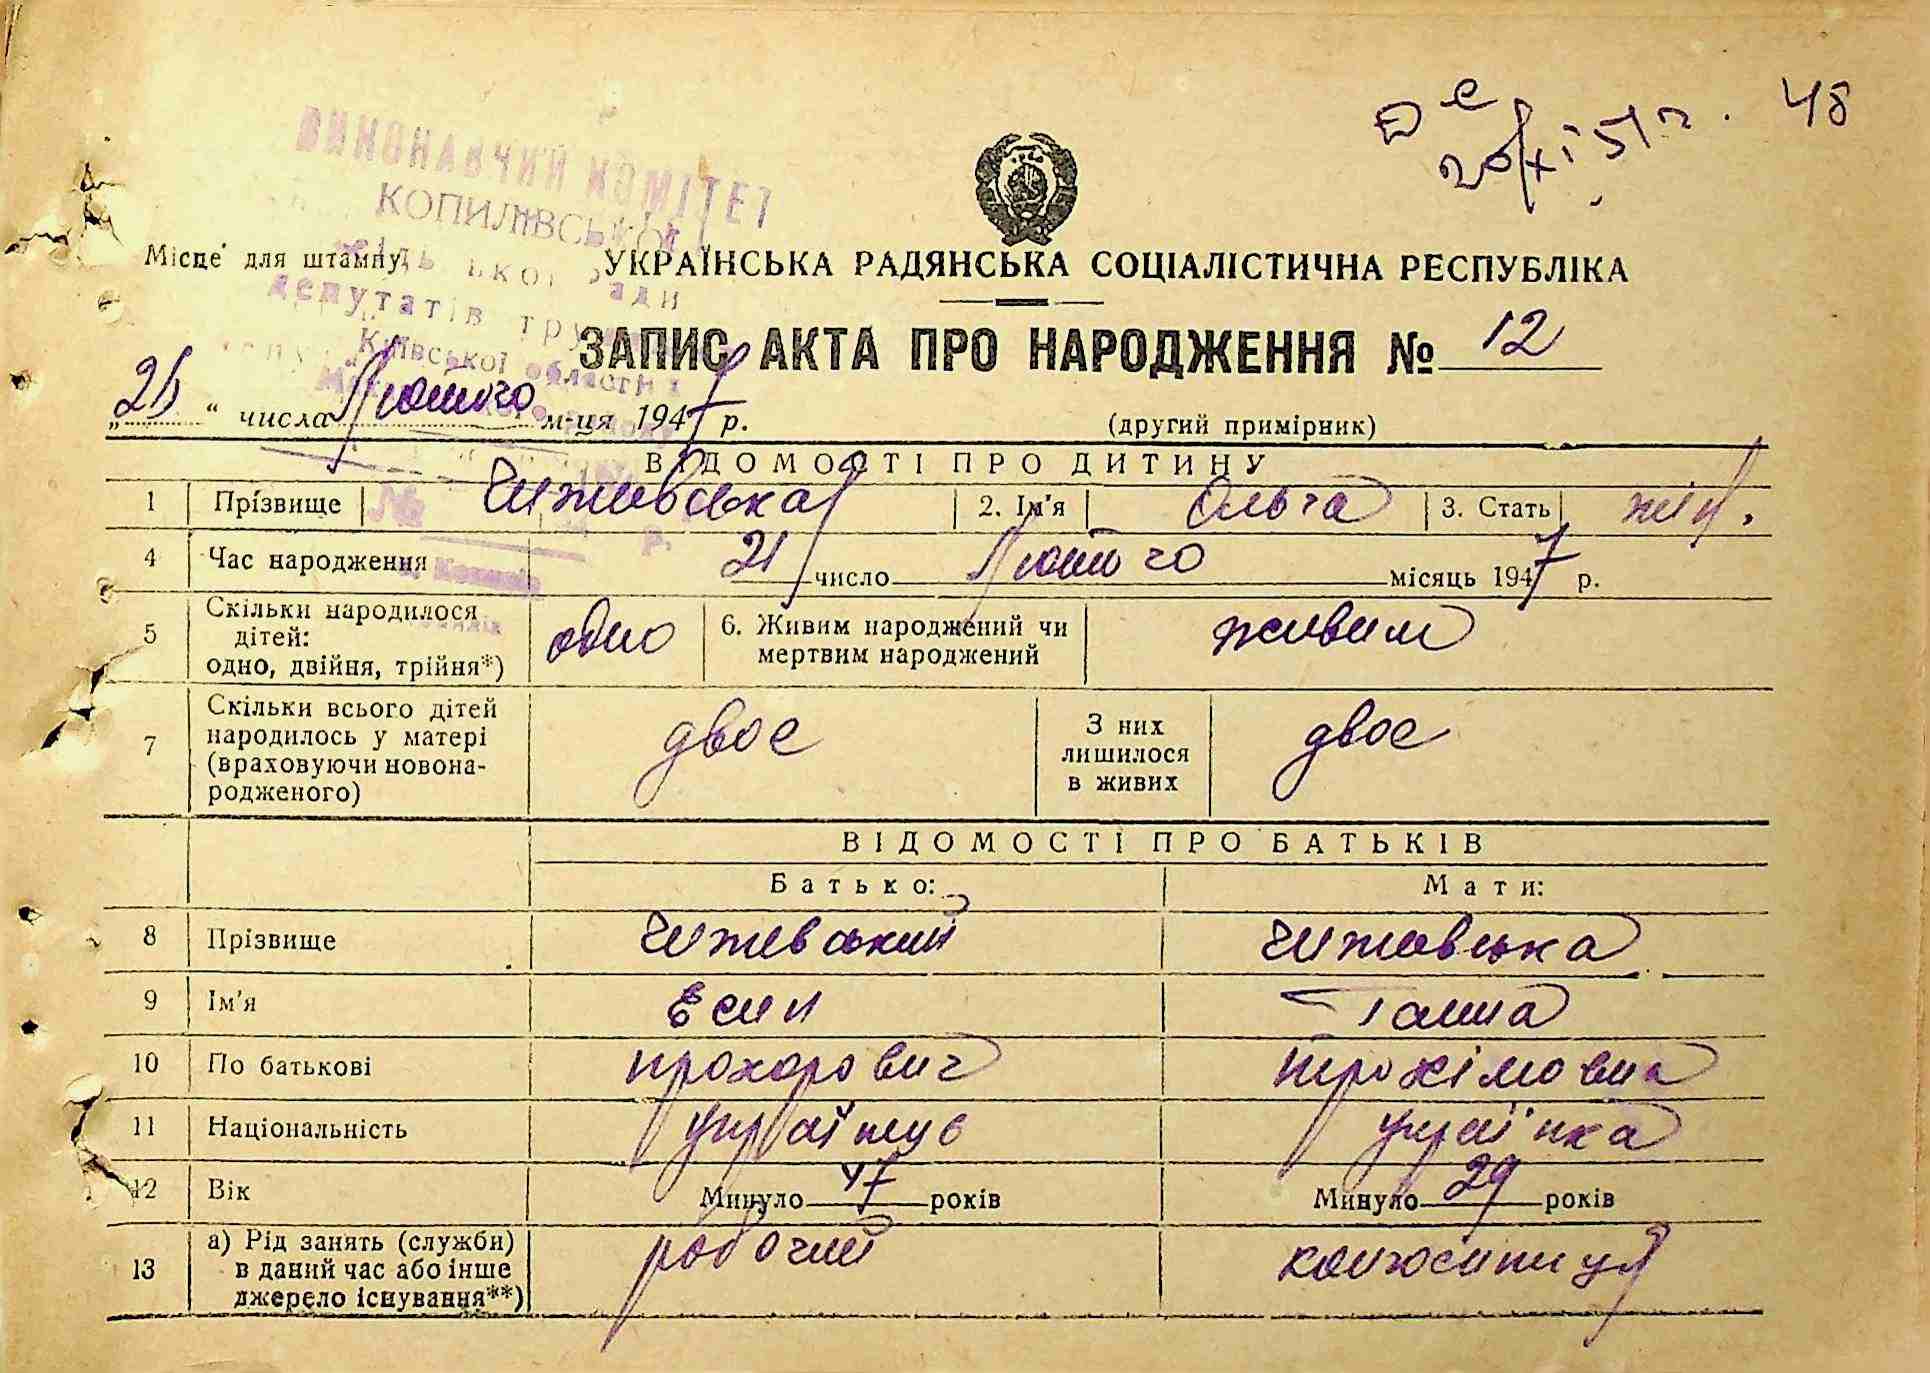 48
20/XI 51 г.
ВИКОНАВЧИЙ КОМІТЕТ
КОПИЛІВСЬКОЇ
ради
депутатів
Київської області
Місце для штампу
УКРАЇНСЬКА РАДЯНСЬКА СОЦІАЛІСТИЧНА РЕСПУБЛІКА
ЗАПИС АКТА ПРО НАРОДЖЕННЯ № 12
" числа Лютого м-ця 1947 р.
(другий примірник)
ВІДОМОСТІ ПРО ДИТИНУ
1 Прізвище Чижевська 2. Ім'я Ольга 3. Стать жін.
№ р.
4 Час народження 21 число Лютого місяць 1947 р.
5 Скільки народилося дітей: одно, двійня, трійня*) одно 6. Живим народжений чи мертвим народжений живим
7 Скільки всього дітей народилось у матері (враховуючи новонародженого) двоє З них лишилося в живих двоє
ВІДОМОСТІ ПРО БАТЬКІВ
Батько: Мати:
8 Прізвище Чижевський Чижевська
9 Ім'я Есип Ганна
10 По батькові Прохорович Трохімовна
11 Національність українець українка
12 Вік Минуло 47 років Минуло 29 років
13 а) Рід занять (служби) в даний час або інше джерело існування**) робочий колгоспниця